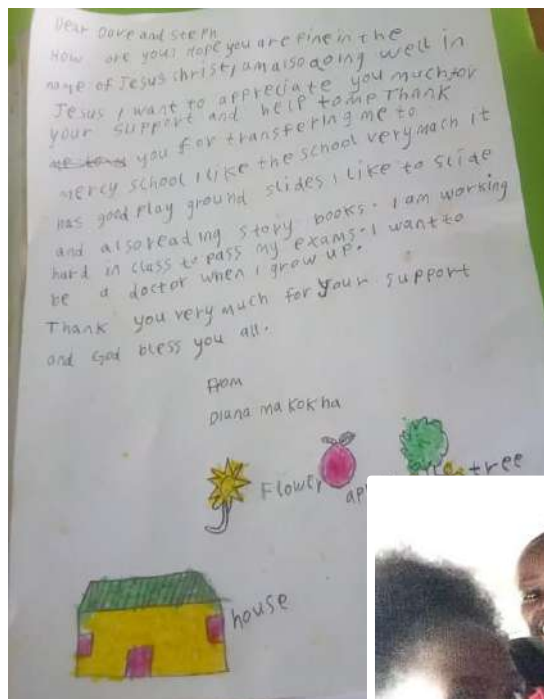 Dear Dave and Steph
How are you? Hope you are fine in the
name of Jesus christ, am also doing well in
Jesus I want to appreciate you much for
your support and help to me Thank
you for transferring me to
mercy school I like the school very mach it
has good play ground slides I like to slide
and also reading story books. I am working
hard in class to pass my exams. I want to
be a doctor when I grow up.
Thank you very much for your support
and God bless you all.
From
Diana makokha
Flower
tree
house